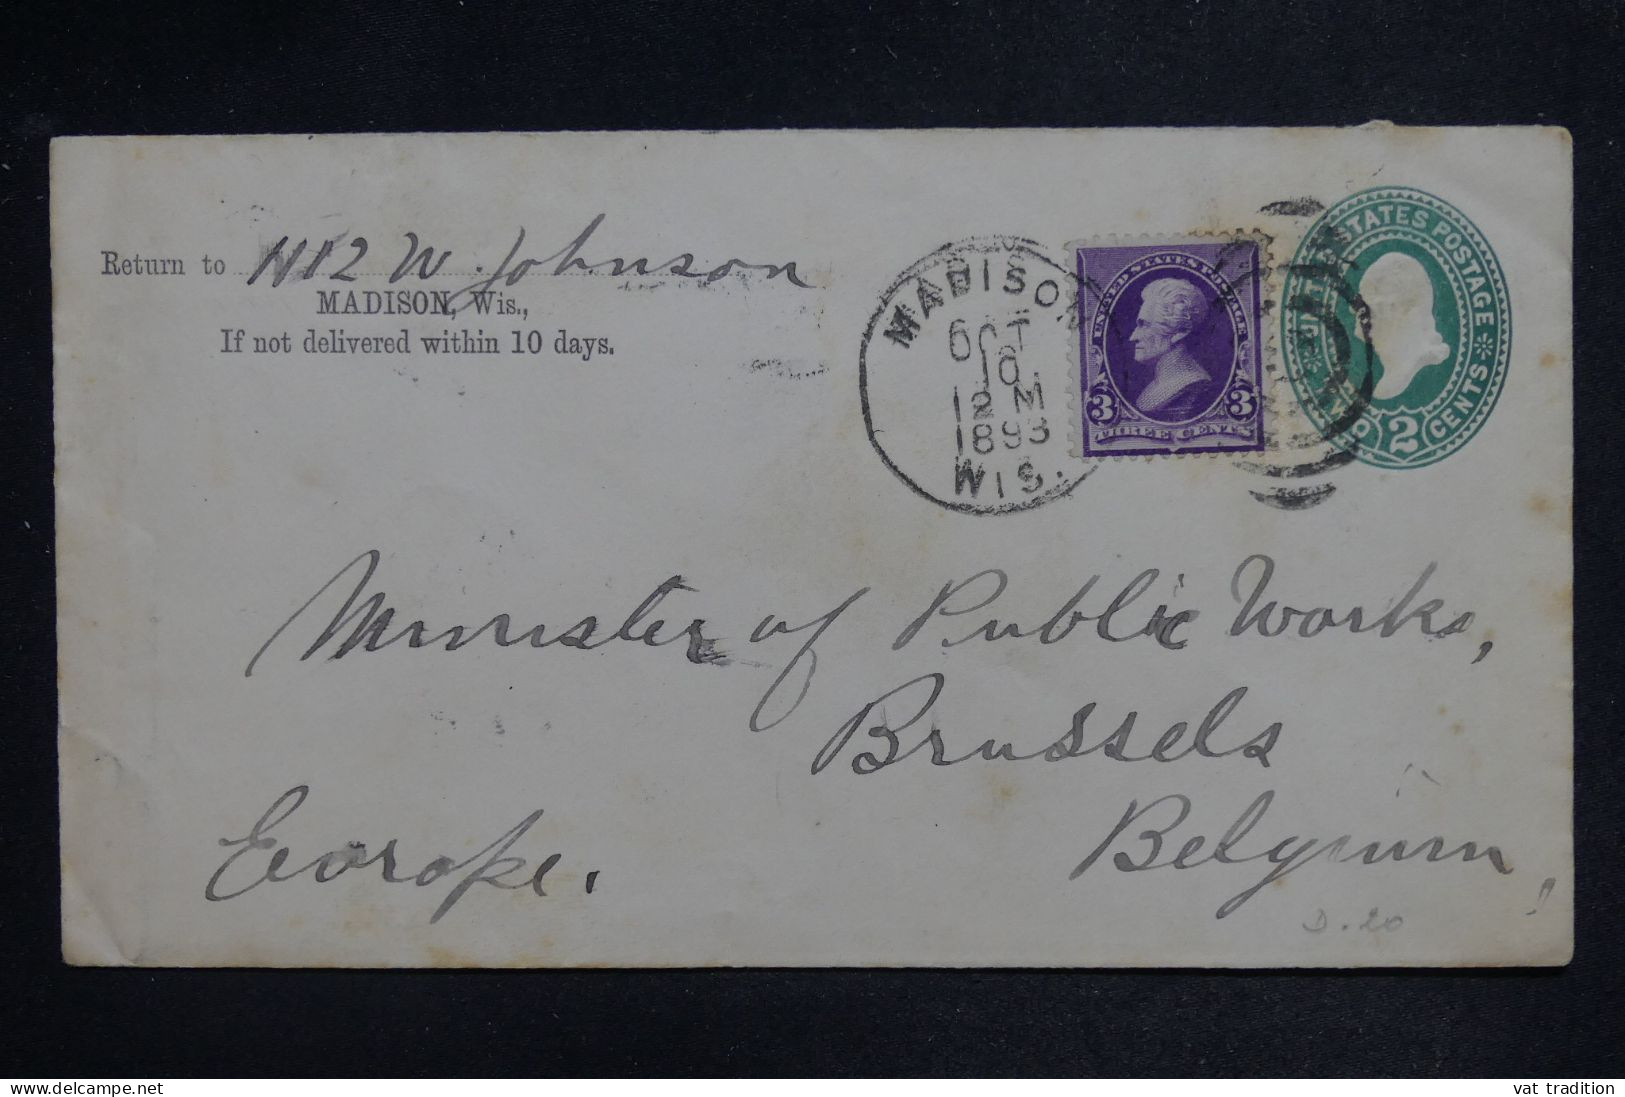 Return to 1112 W. Johnson
MADISON, Wis.,
If not delivered within 10 days.
MADISON
OCT
10
12 M
1893
WIS.
UNITED STATES POSTAGE
3 3
THREE CENTS
UNITED STATES POSTAGE
TWO 2 CENTS
Minister of Public Works,
Brussels
Belgium
Europe.
D.20
vat tradition